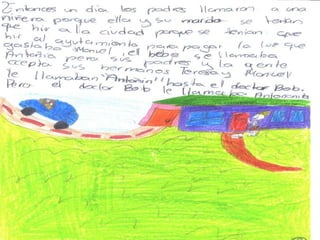 Entonces un dia los padres llamaron a una
niñera porque ella y su marido se tenian
que hir a la ciudad porque se tenian que
hir al ayuntamiento para pagar la luz que
gastaba Manuel, el bebe se llamaba
Antonio pero sus padres y la gente
cepto sus hermanos Teresa y Manuel
le llamaban "Antonin" hasta el doctor Bob.
Pero el doctor Bob le llamaba